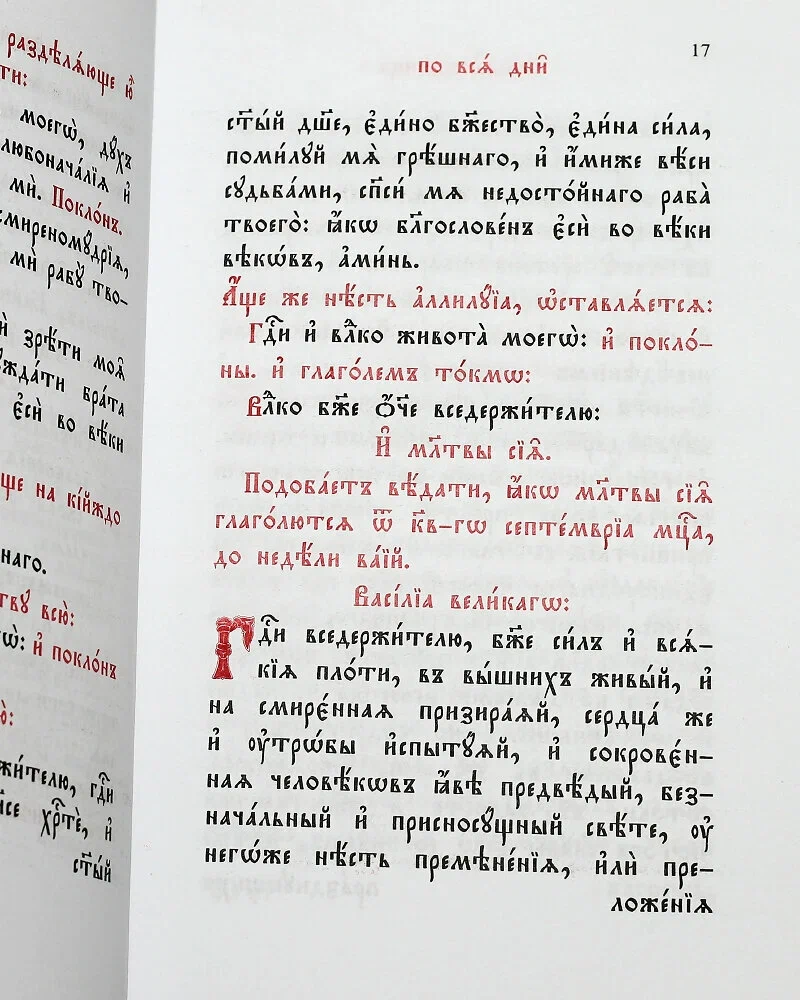 раздѣлѧ́юще ю҆̀
ти:
моегѡ̀, дꙋ́хъ
любонача́лїѧ и҆
мѝ. Покло́нъ.
смиреномꙋ́дрїѧ,
мѝ рабꙋ̀ тво-
зрѣ́ти моѧ̑
жда́ти бра́та
є҆сѝ во вѣ́ки
на кі́йждо
наго.
всю̀:
и҆ покло́нъ
жи́телю, гдⷭ҇и
хрⷭ҇тѐ, и҆
ст҃ы́й
17
по всѧ̑ дни̑
ст҃ы́й дш҃е, є҆ди́но бж҃ество̀, є҆ди́на си́ла,
поми́лꙋй мѧ̀ грѣ́шнаго, и҆ и҆́миже вѣ́си
сꙋдьба́ми, сп҃си́ мѧ недосто́йнаго раба̀
твоего̀: ꙗ҆́кѡ бл҃гослове́нъ є҆сѝ во вѣ́ки
вѣкѡ́въ, а҆ми́нь.
А҆́ще же нѣ́сть а҆ллилꙋ́їа, ѡ҆ставлѧ́етсѧ:
Гдⷭ҇и и҆ влⷣко живота̀ моегѡ̀: и҆ покло́-
ны. и҆ глаго́лемъ то́кмѡ:
Влⷣко бж҃е ѻ҆́ч҃е вседержи́телю:
И҆̀ мл҃твы сїѧ̑.
Подоба́етъ вѣ́дати, ꙗ҆́кѡ мл҃твы сїѧ̑
глаго́лютсѧ ѿ к҃в-гѡ септе́мврїа мцⷭ҇а,
до недѣ́ли ва́їй.
Васі́лїа вели́кагѡ:
Гдⷭ҇и вседержи́телю, бж҃е си́лъ и҆ всѧ́-
кїѧ пло́ти, въ вы́шнихъ живы́й, и҆
на смирє́ннаѧ призира́ѧй, сердца́ же
и҆ ᲂу҆трѡ́бы и҆спытꙋ́ѧй, и҆ сокровє́н-
наѧ человѣ́кѡвъ ꙗ҆́вѣ предвѣ́дый, без-
нача́льный и҆ присносꙋ́щный свѣ́те, ᲂу҆
негѡ́же нѣ́сть премѣне́нїѧ, и҆лѝ пре-
ложе́нїѧ